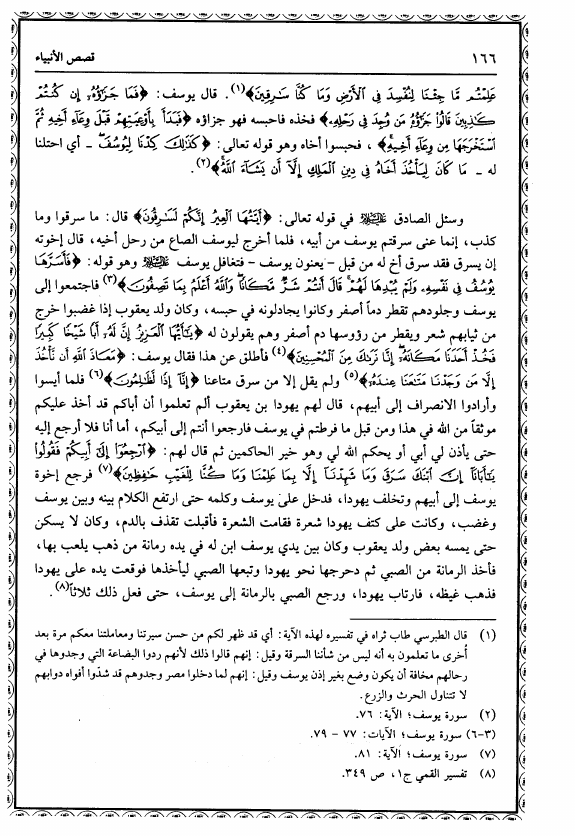 ١٦٦
قصص الأنبياء
عَلِمْتُم مَّا جِئْنَا لِنُفْسِدَ فِى ٱلْأَرْضِ وَمَا كُنَّا سَٰرِقِينَ﴾(١). قال يوسف: ﴿فَمَا جَزَٰٓؤُهُۥٓ إِن كُنتُمْ
كَٰذِبِينَ قَالُوا۟ جَزَٰٓؤُهُۥ مَن وُجِدَ فِى رَحْلِهِۦ﴾ فخذه فاحبسه فهو جزاؤه ﴿فَبَدَأَ بِأَوْعِيَتِهِمْ قَبْلَ وِعَآءِ أَخِيهِ ثُمَّ
ٱسْتَخْرَجَهَا مِن وِعَآءِ أَخِيهِ﴾، فحبسوا أخاه وهو قوله تعالى: ﴿كَذَٰلِكَ كِدْنَا لِيُوسُفَ ـ أي احتلنا
له ـ مَا كَانَ لِيَأْخُذَ أَخَاهُ فِى دِينِ ٱلْمَلِكِ إِلَّآ أَن يَشَآءَ ٱللَّهُ﴾(٢).
وسئل الصادق عليه السلام في قوله تعالى: ﴿أَيَّتُهَا ٱلْعِيرُ إِنَّكُمْ لَسَٰرِقُونَ﴾ قال: ما سرقوا وما
كذب، إنما عنى سرقتم يوسف من أبيه، فلما أخرج ليوسف الصاع من رحل أخيه، قال إخوته
إن يسرق فقد سرق أخ له من قبل - يعنون يوسف - فتغافل يوسف عليه السلام وهو قوله: ﴿فَأَسَرَّهَا
يُوسُفُ فِى نَفْسِهِۦ وَلَمْ يُبْدِهَا لَهُمْ قَالَ أَنتُمْ شَرٌّ مَّكَانًا وَٱللَّهُ أَعْلَمُ بِمَا تَصِفُونَ﴾(٣) فاجتمعوا إلى
يوسف وجلودهم تقطر دماً أصفر وكانوا يجادلونه في حبسه، وكان ولد يعقوب إذا غضبوا خرج
من ثيابهم شعر ويقطر من رؤوسها دم أصفر وهم يقولون له ﴿يَٰٓأَيُّهَا ٱلْعَزِيزُ إِنَّ لَهُۥٓ أَبًا شَيْخًا كَبِيرًا
فَخُذْ أَحَدَنَا مَكَانَهُۥٓ إِنَّا نَرَىٰكَ مِنَ ٱلْمُحْسِنِينَ﴾(٤) فأطلق عن هذا فقال يوسف: ﴿مَعَاذَ ٱللَّهِ أَن نَّأْخُذَ
إِلَّا مَن وَجَدْنَا مَتَٰعَنَا عِندَهُۥٓ﴾(٥) ولم يقل إلا من سرق متاعنا ﴿إِنَّآ إِذًا لَّظَٰلِمُونَ﴾(٦) فلما أيسوا
وأرادوا الانصراف إلى أبيهم، قال لهم يهودا بن يعقوب ألم تعلموا أن أباكم قد أخذ عليكم
موثقاً من الله في هذا ومن قبل ما فرطتم في يوسف فارجعوا أنتم إلى أبيكم، أما أنا فلا أرجع إليه
حتى يأذن لي أبي أو يحكم الله لي وهو خير الحاكمين ثم قال لهم: ﴿ٱرْجِعُوٓا۟ إِلَىٰٓ أَبِيكُمْ فَقُولُوا۟
يَٰٓأَبَانَآ إِنَّ ٱبْنَكَ سَرَقَ وَمَا شَهِدْنَآ إِلَّا بِمَا عَلِمْنَا وَمَا كُنَّا لِلْغَيْبِ حَٰفِظِينَ﴾(٧) فرجع إخوة
يوسف إلى أبيهم وتخلف يهودا، فدخل على يوسف وكلمه حتى ارتفع الكلام بينه وبين يوسف
وغضب، وكانت على كتف يهودا شعرة فقامت الشعرة فأقبلت تقذف بالدم، وكان لا يسكن
حتى يمسه بعض ولد يعقوب وكان بين يدي يوسف ابن له في يده رمانة من ذهب يلعب بها،
فأخذ الرمانة من الصبي ثم دحرجها نحو يهودا وتبعها الصبي ليأخذها فوقعت يده على يهودا
فذهب غيظه، فارتاب يهودا، ورجع الصبي بالرمانة إلى يوسف، حتى فعل ذلك ثلاثاً(٨).
(١) قال الطبرسي طاب ثراه في تفسيره لهذه الآية: أي قد ظهر لكم من حسن سيرتنا ومعاملتنا معكم مرة بعد
أُخرى ما تعلمون به أنه ليس من شأننا السرقة وقيل: إنهم قالوا ذلك لأنهم ردوا البضاعة التي وجدوها في
رحالهم مخافة أن يكون وضع بغير إذن يوسف وقيل: إنهم لما دخلوا مصر وجدوهم قد شدّوا أفواه دوابهم
لا تتناول الحرث والزرع.
(٢) سورة يوسف؛ الآية: ٧٦.
(٣-٦) سورة يوسف؛ الآيات: ٧٧ - ٧٩.
(٧) سورة يوسف؛ الآية: ٨١.
(٨) تفسير القمي ج١، ص ٣٤٩.